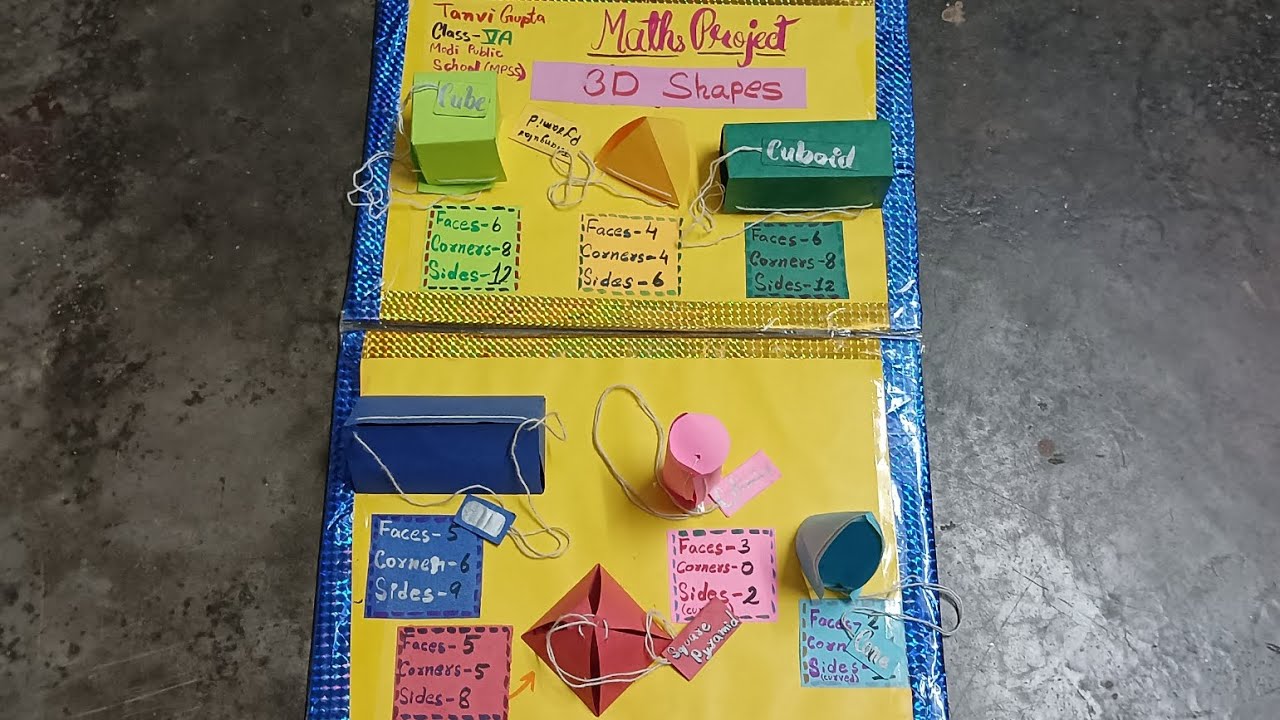 Tanvi Gupta
Class-VA
Modi Public
School (MPSS)
Maths Project
3D Shapes
Cube
Triangular
Pyramid
Cuboid
Faces-6
Corners-8
Sides-12
Faces-4
Corners-4
Sides-6
Faces-6
Corners-8
Sides-12
Faces-5
Corners-6
Sides-9
Faces-3
Corners-0
Sides-2
(curved)
Square
Pyramid
Faces-5
Corners-5
Sides-8
Cone
Sides-
(curved)